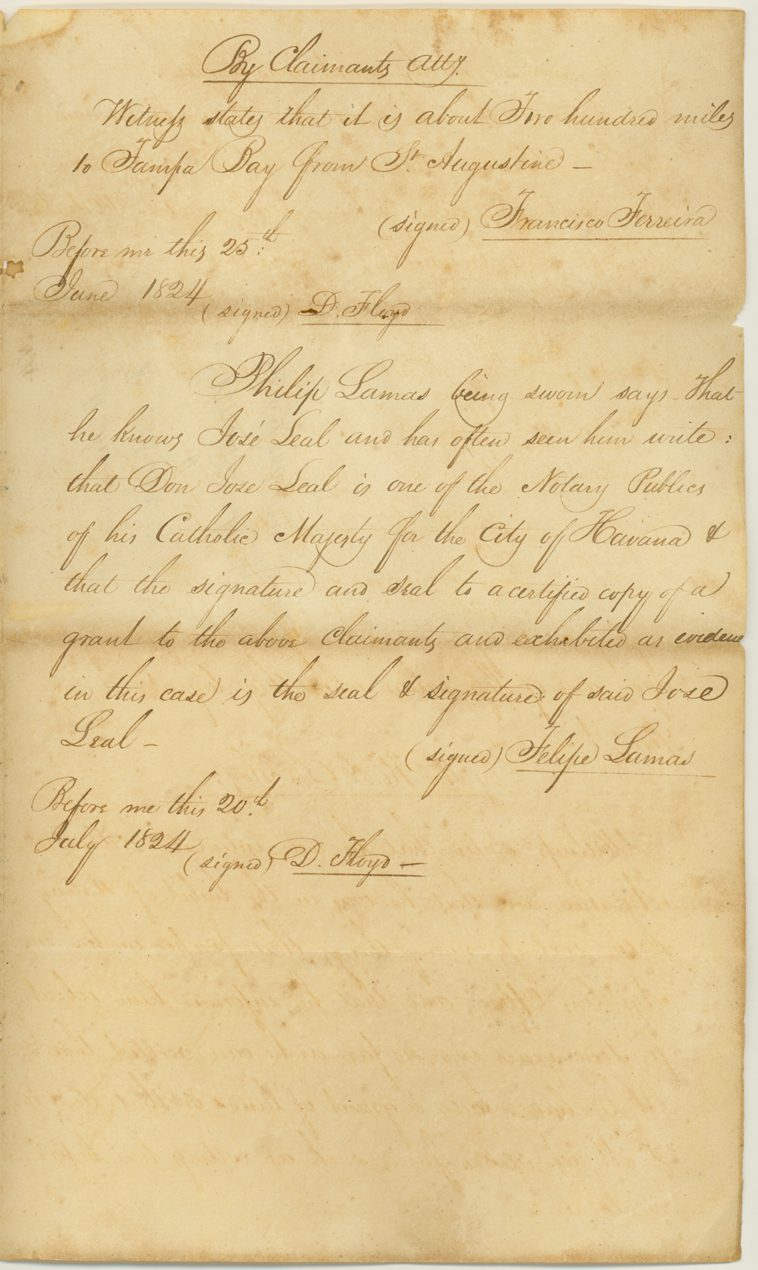 By Claimants Atty.
Witness states that it is about Two hundred miles
to Tampa Bay from St. Augustine —
(signed) Francisco Ferreira
Before me this 25th
June 1824
(signed) D. Floyd
Philip Lamas being sworn says that
he knows José Leal and has often seen him write:
that Don Jose Leal is one of the Notary Publics
of his Catholic Majesty for the City of Havana &
that the signature and seal to a certified copy of a
grant to the above claimants and exhibited as evidence
in this case is the seal & signature of said Jose
Leal —
(signed) Felipe Lamas
Before me this 20th
July 1824
(signed) D. Floyd —